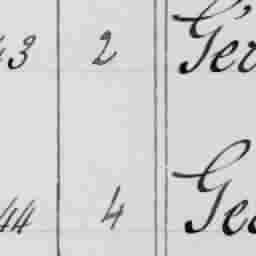 43 2 Ger
44 4 Geo